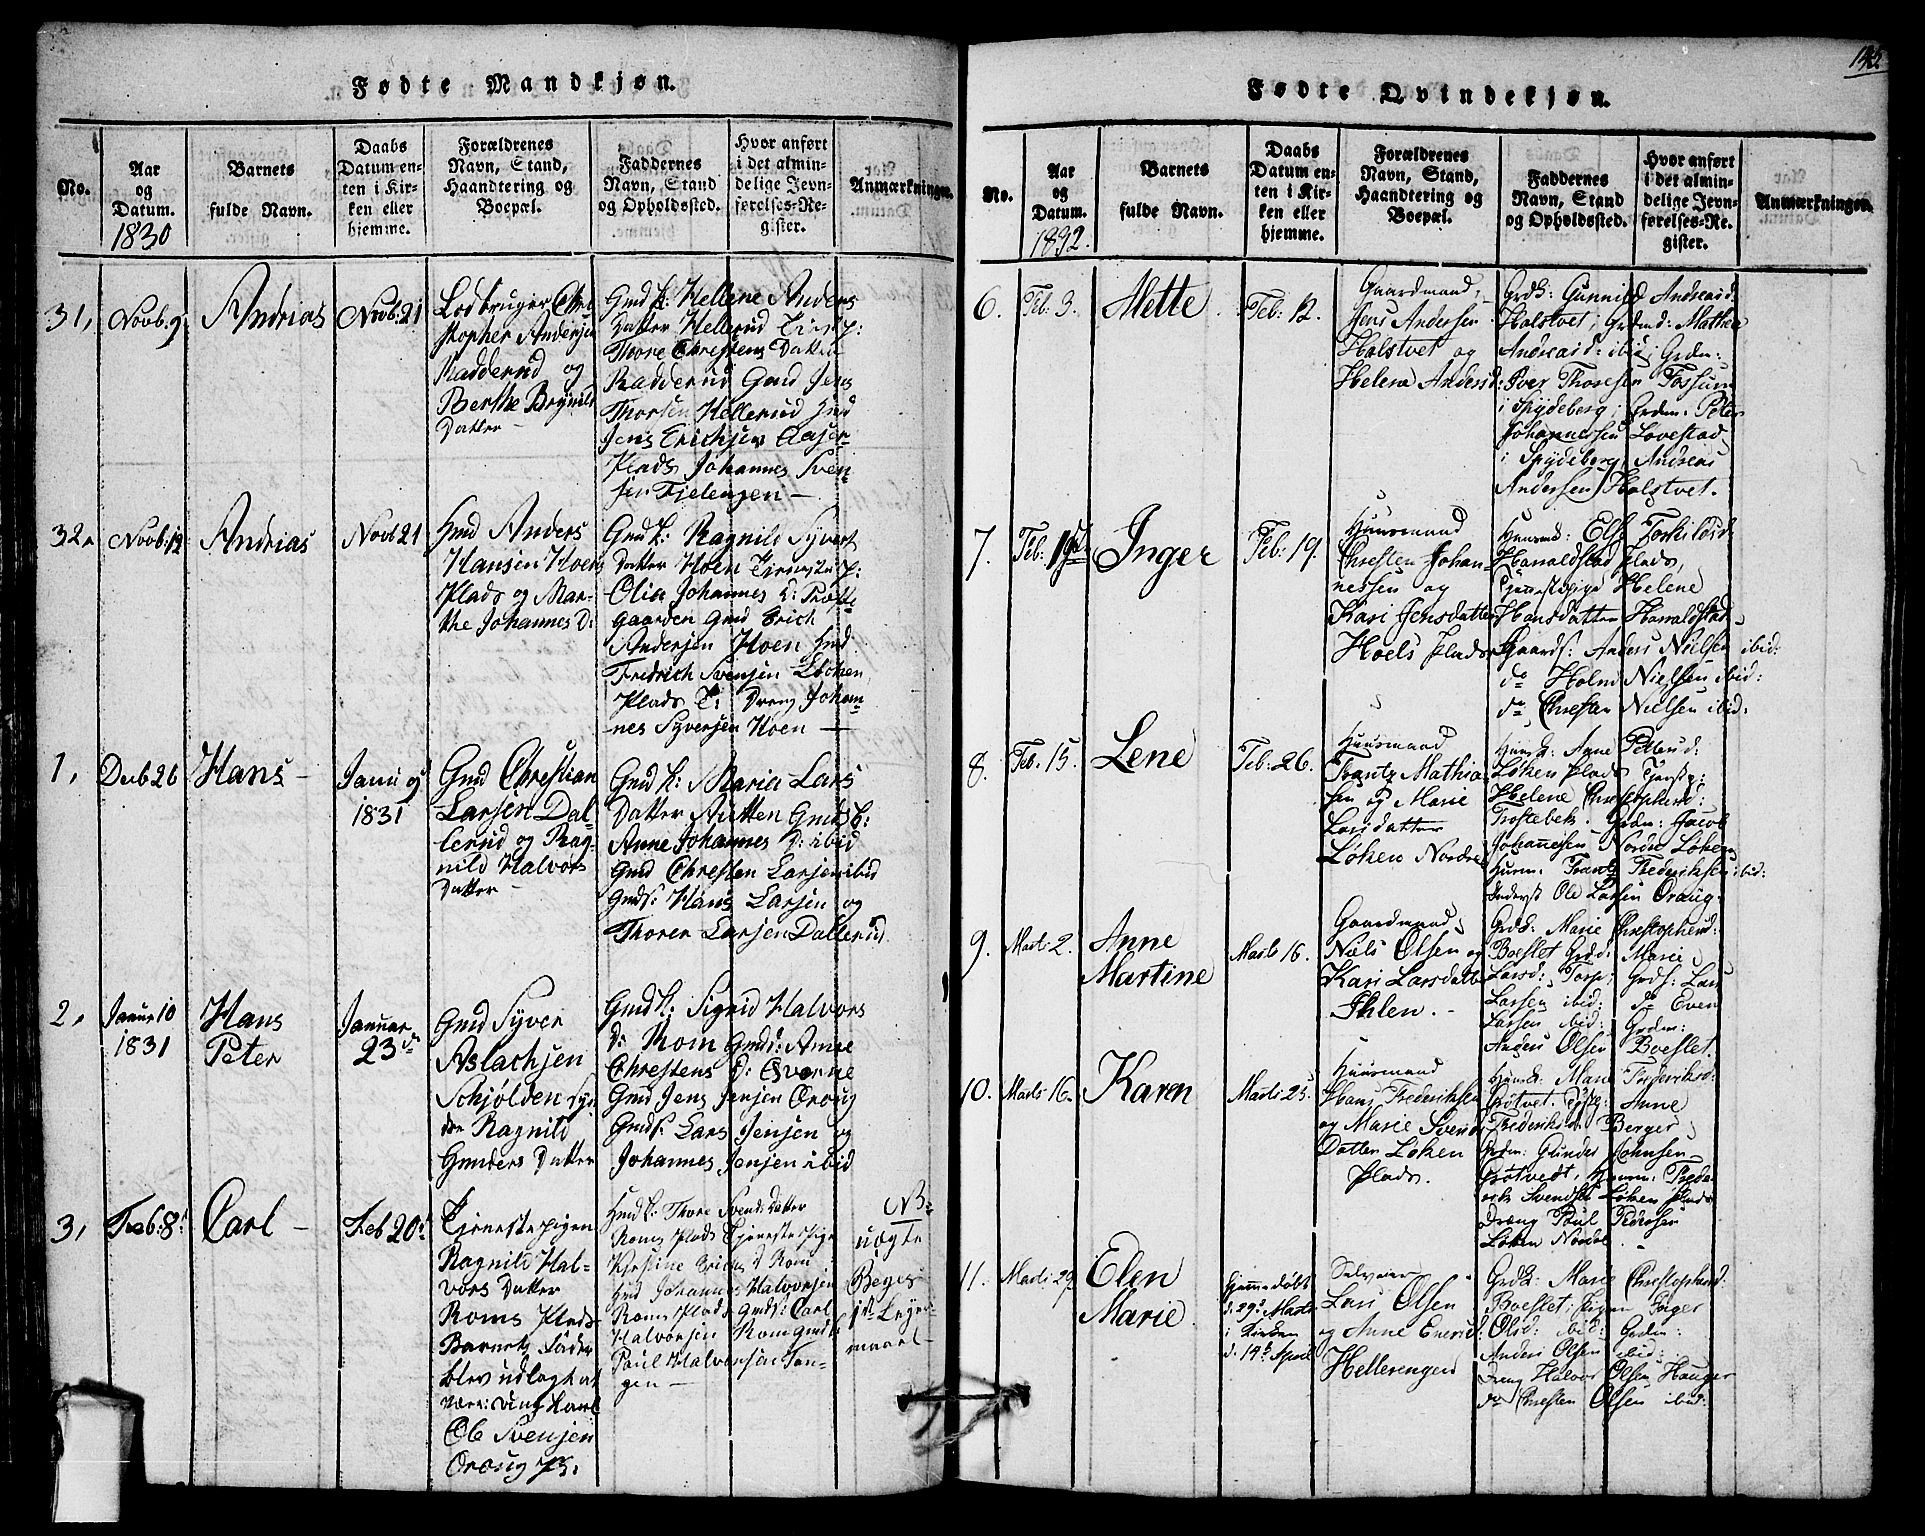 Fødte Mandkjøn.
No.
Aar
og
Datum.
1830
Barnets
fulde Navn.
Daabs
Datum en-
ten i Kir-
ken eller
hjemme.
Forældrenes
Navn, Stand,
Haandtering og
Boepæl.
Faddernes
Navn, Stand
og Opholdssted.
Hvor anført
i det almin-
delige Jevn-
førelses-Re-
gister.
Anmærkninger.
31,
Novb: 9
Andrias
Novb: 21
Lodbruger Chri-
stopher Andersen
Radderud og
Berthe Brynild
Datter
Gmd K: Hellene Anders
Datter Hellerud
Thore Christens Datter
Radderud Gmd Jens
Thorsen Hellerud Hmd
Jens Erichsen
Plads Johannes Sven
sen Fjelengen
32,
Novb: 12
Andrias
Novb 21
Hmd Anders
Hansen Hoen
Plads og Mar-
the Johannes D:
Gmd K: Ragnild Syvert
Datter Hoen
Olia Johannes D:
gaarden Gmd Erich
Andersen Hoen Hmd
Fredrich Svensen Løken
Plads Dreng Johan
nes Syversen Hoen
1,
Decb 26
Hans
Janu 9
1831
Gmd Christian
Larsen Dal-
lerud og Rag-
nild Halvors
Datter
Gmd K: Maria Lars
Datter Autten Gmds K:
Anne Johannes D: ibid
Gmd Christen Larsen ibid
Gmds: Hans Larsen og
Thorer Larsen Dallerud
2,
Januar 10
1831
Hans
Peter
Januar
23de
Gmd Syver
Aslachsen
Schjølden Syn
dre Ragnild
Gunders Datter
Gmd K: Sigrid Halvors
D: Rom Gmds: Anne
Christens D:
Gmd Jens Jensen Oraug
Gmds: Lars Jensen og
Johannes Jensen ibid
3,
Feb: 8
Carl
Feb 20
Tjenestepigen
Ragnild Hal-
vors Datter
Roms Plads
Barnets Fader
blev udlagt at
være: ung Karl
Ole Svensen
Oraug
Hmd K: Thore Svends Datter
Roms Plads Tjenestepige
Kirstine Erics D Rom
Hmd Johannes Halvorsen
Roms Plads Gmds: Carl
Halvorsen Rom Gmds
Paul Halvorsen Tan-
gen
NB
uægte
Beges
1ste Leyer-
maal
142
Fødte Qvindekjøn.
No.
Aar
og
Datum.
1832.
Barnets
fulde Navn.
Daabs
Datum en-
ten i Kir-
ken eller
hjemme.
Forældrenes
Navn, Stand,
Haandtering og
Boepæl.
Faddernes
Navn, Stand
og Opholdssted.
Hvor anført
i det almin-
delige Jevn-
førelses-Re-
gister.
Anmærkninger.
6.
Feb: 3.
Mette
Feb: 12.
Gaardmand
Jens Andersen
Holstvet og
Helene Andersd:
Grdk: Gunnild Andreasd:
Holstvet; Grdmd: Mathea
Andreasd: ibid; Grdm:
Iver Thoresen Fossum
i Spydeberg; Grdm: Peter
Johannessen Lovestad
i Spydeberg, Andreas
Andersen Holstvet.
7.
Feb:
Inger
Feb: 19.
Huusmand
Christen Johan-
nessen og
Kari Jensdatter
Hoels Plads
Huusmd: Else Torkildsd:
Haraldstad Plads,
Tjenestepige Helene
Hansdatter Haraldstad
Gaards: Anders Nielsen ibid:
do Holm Nielsen ibid:
do Christen Nielsen ibid:
8.
Feb: 15.
Lene
Feb: 26.
Huusmand
Frantz Mathia
sen og Marie
Larsdatter
Løken Nordre
Huusk: Anne
Løken Plads Tjenstp:
Helene Christophersd:
Trostebek. Grdm: Jacob
Johannesen Nordre Løken
Husm: Frantz Frederiksen ibid:
Inderst Ole Larsen Oraug.
9.
Marts 2.
Anne
Martine
Marts 16.
Gaardmand
Niels Olsen og
Kari Larsdatter
Ihlen.
Grdk: Marie Christophersd:
Boeslet Grdd: Marie
Larsd: Torp; Grds: Lars
Larsen ibid: do Even
Larsen ibid: Grdm:
Anders Olsen Boeslet.
10.
Marts 16.
Karen
Marts 25.
Huusmand
Hans Frederiksen
og Marie Svends
Datter Løken
Plads.
Huusk: Marie Frederiksd:
Grøtvet. Anne
Frederiksd: Berger
Grdm: Gunder Johnsen
Grøtvedt, Huusm: Frede-
rik Svendsen Løken Plads
Dreng Paul Pedersen
Løken Nordre.
11.
Marts: 29.
Elen
Marie
Hjemmedøbt
d. 29de Marts
i Kirken
d. 14de April
Selveier
Lars Olsen
og Anne Eversd:
Hellerengen
Grdk: Marie Christophersd:
Boeslet; Pigen Inger
Olsd: ibid: Grdm:
Anders Olsen ibid:
Dreng Halvor Olsen Hauger
do Christen Olsen ibid: